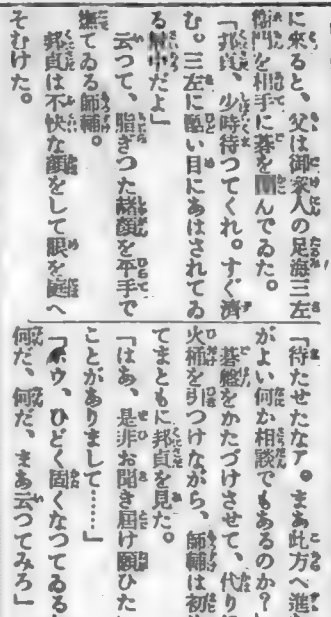 に来ると、父は御家人の足海三左
衛門を相手に碁を囲んでゐた。
「邦貞、少時待つてくれ。すぐ済
む。三左に酷い目にあはされてゐ
るだよ」
云つて、脂ぎつた赭顔を平手で
撫でゐる師輔。
邦貞は不快な顔をして眼を庭へ
そむけた。
「待たせたなア。まあ此方へ進
がよい何か相談でもあるのか?
碁盤をかたづけさせて、代り
火桶を引つけながら、師輔は初
てまともに邦貞を見た。
「はあ、是非お聞き届け願ひた
ことがありまして……」
「ホウ、ひどく固くなつてゐる
何だ、何だ、まあ云つてみろ」